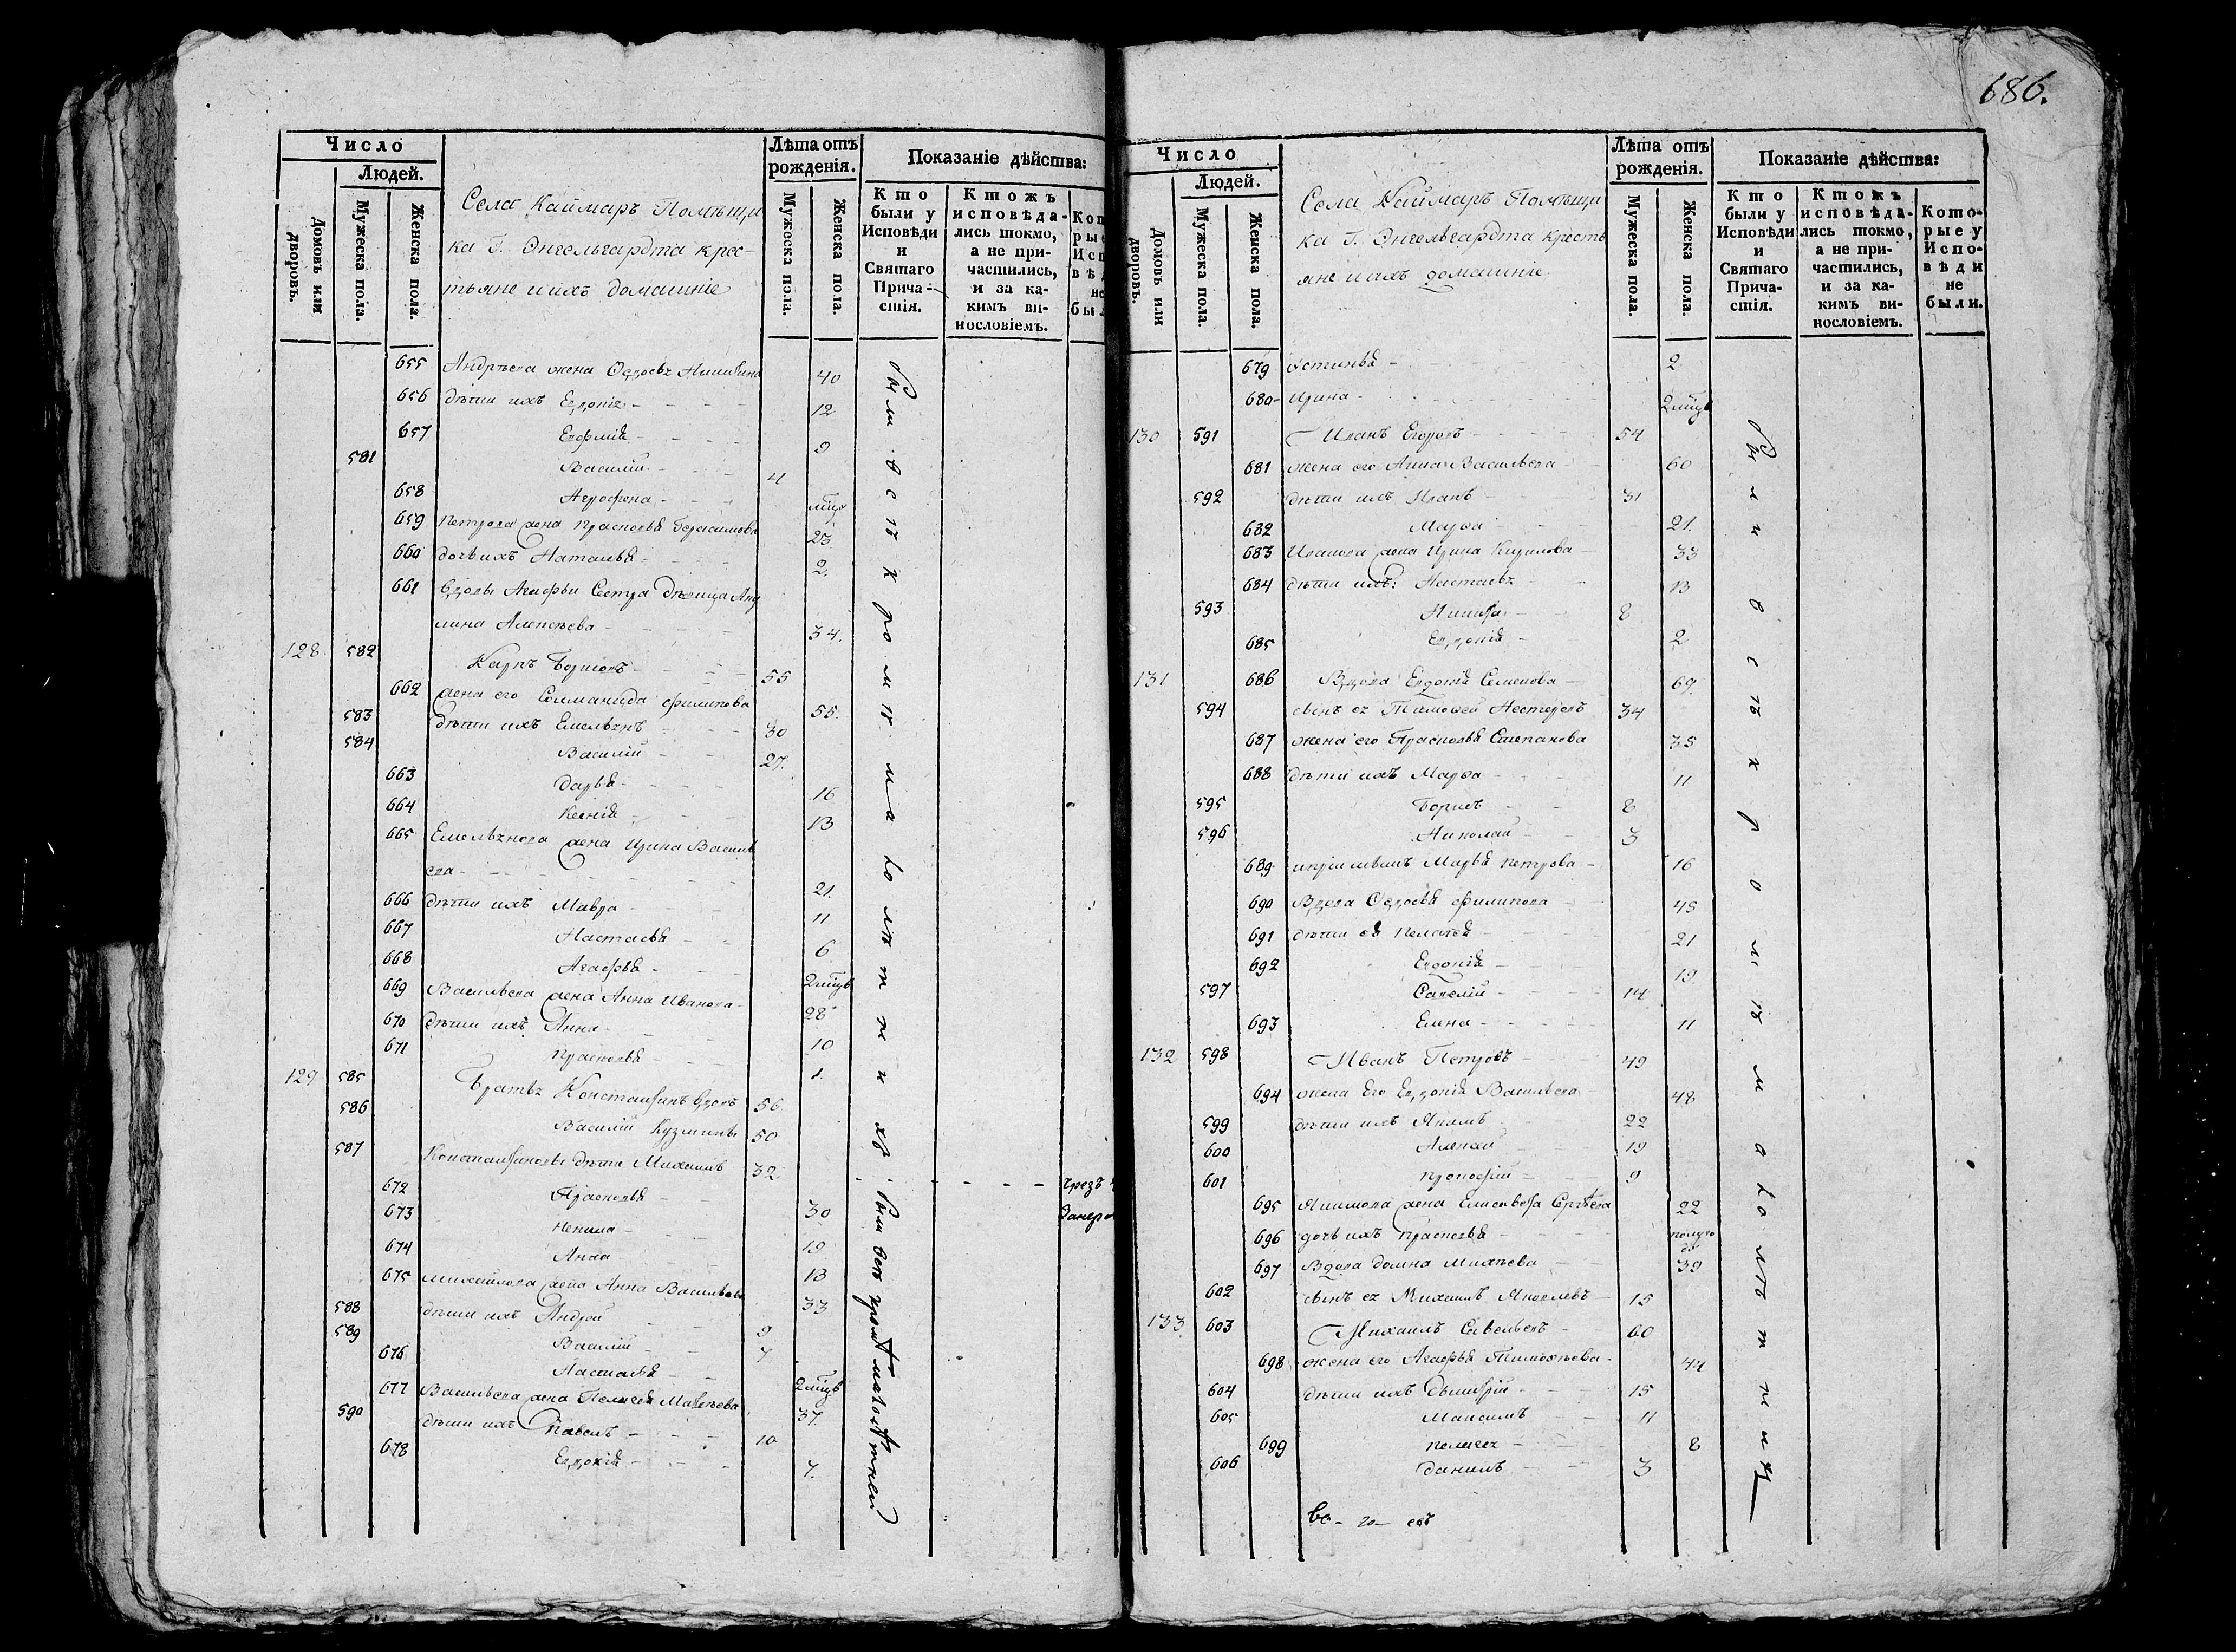 686.
Число
Людей.
Домовъ или дворовъ.
Мужеска пола.
Женска пола.
Села Каймаръ Помѣщи
ка Г. Энгельгардта крес
тьяне и ихъ домашніе
Лѣта отъ рожденія.
Мужеска пола.
Женска пола.
Показаніе дѣйства:
Кто были у Исповѣди и Святаго Причастія.
Ктожъ исповѣдались токмо, а не причастились, и за какимъ винословіемъ.
655 Андрѣева жена Федосья 40
656 дѣти ихъ Евдокія 12
657 Евфимія 9
581 Василій 4
658 Агрофена
659 Петрова жена Прасковья Герасимова 23
660 дочь ихъ Наталья 2
661 Вдовы Агафьи Сестра дѣвица Аку
лина Алексѣева 34.
128 582 Карпъ Борисовъ 55
662 жена его Соломанида Филипова 55.
583 дѣти ихъ Емельянъ 30
584 Василій 27.
663 Дарья 16
664 Ксенія 13
665 Емельянова жена Ирина Василь
ева 21.
666 дѣти ихъ Мавра 11
667 Настасья 6
668 Агафья 2 мцъ
669 Васильева жена Анна Иванова 28
670 дѣти ихъ Анна 10
671 Прасковья 1.
129 585 Братья Константинъ вдовъ 56.
586 Василій Кузмины 50
587 Константиновы дѣти Михаилъ 32
672 Прасковья 30
673 Ненила 19
674 Анна 18
675 Михайлова жена Анна Васильева 33
588 дѣти ихъ Андрей 9
589 Василій 7
676 Настасья 2 мцъ
677 Васильева жена Пелагея Матвѣева 37.
590 дѣти ихъ Павелъ 10
678 Евдокія 7.
были всѣ кромѣ малолѣтнихъ
были всѣ кромѣ малолѣтней
чрезъ
Число
Людей.
Домовъ или дворовъ.
Мужеска пола.
Женска пола.
Села Каймаръ Помѣщи
ка Г. Энгельгардта кресть
яне и ихъ домашніе
Лѣта отъ рожденія.
Мужеска пола.
Женска пола.
Показаніе дѣйства:
Кто были у Исповѣди и Святаго Причастія.
Ктожъ исповѣдались токмо, а не причастились, и за какимъ винословіемъ.
Которые у Исповѣди не были.
679 Устинья 2
680 Ирина 2 мцъ
130 591 Иванъ Егоровъ 54
681 жена его Анна Васильева 60
592 дѣти ихъ Иванъ 31
682 Марѳа 21.
683 Иванова жена Ирина Кирилова 33
684 дѣти ихъ: Настасья 13
593 Никита 8
685 Евдокія 2
131 686 Вдова Евдокія Семенова 69.
594 сынъ ея Тимоѳей Нестеровъ 34
687 жена его Прасковья Степанова 35
688 дѣти ихъ Марѳа 11
595 Борисъ 8
596 Николай 3
689 Марья Петрова 16
690 Вдова Федосья Филипова 45
691 дѣти ея Пелагея 21
692 Евдокія 19
597 Савелій 14
693 Елена 11
132 598 Иванъ Петровъ 49
694 жена его Евдокія Васильева 48
599 дѣти ихъ Якимъ 22
600 Алексей 19
601 Прокофій 9
695 Якимова жена Елисавета Сергѣева 22
696 дочь ихъ Прасковья полуго
да
697 Вдова Домна Михѣева 39
602 сынъ ея Михаилъ Яковлевъ 15
133 603 Михаилъ Савельевъ 60
698 жена его Агафья Тимоѳѣева 44
604 дѣти ихъ Дмитрій 15
605 Максимъ 11
699 Пелагея 8
606 Данилъ 3
были всѣ кромѣ малолѣтнихъ